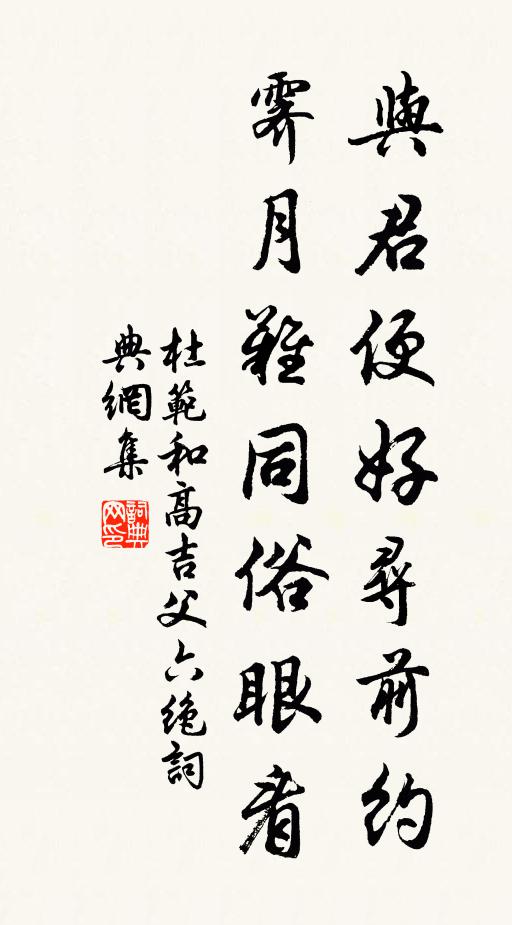 與君便好尋前約
霽月難同俗眼看
杜範和高吉父六絶詞
典網集
詞典网印